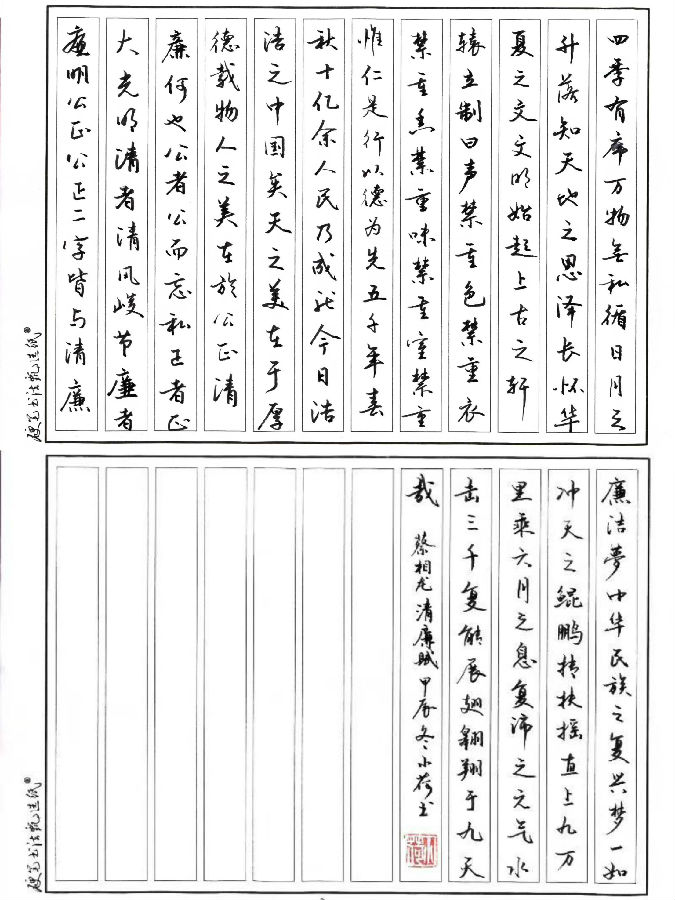 四季有序万物无私循日月之
升落知天地之恩泽长怀华
夏之交文明始起上古之轩
辕立制曰声禁重色禁重衣
禁重香禁重味禁重室禁重
惟仁是行以德为先五千年春
秋十亿余人民乃成就今日浩
浩之中国矣天之美在于厚
德载物人之美在於公正清
廉何也公者公而忘私正者正
大光明清者清风峻节廉者
廉明公正公正二字皆与清廉
硬笔书法甄选纸®
廉洁夢中华民族之复兴梦一如
冲天之鲲鹏抟扶摇直上九万
里乘六月之息复沛之元气水
击三千复能展翅翱翔于九天
哉
蔡相龙清廉賦甲辰冬小荷书
硬笔书法甄选纸®